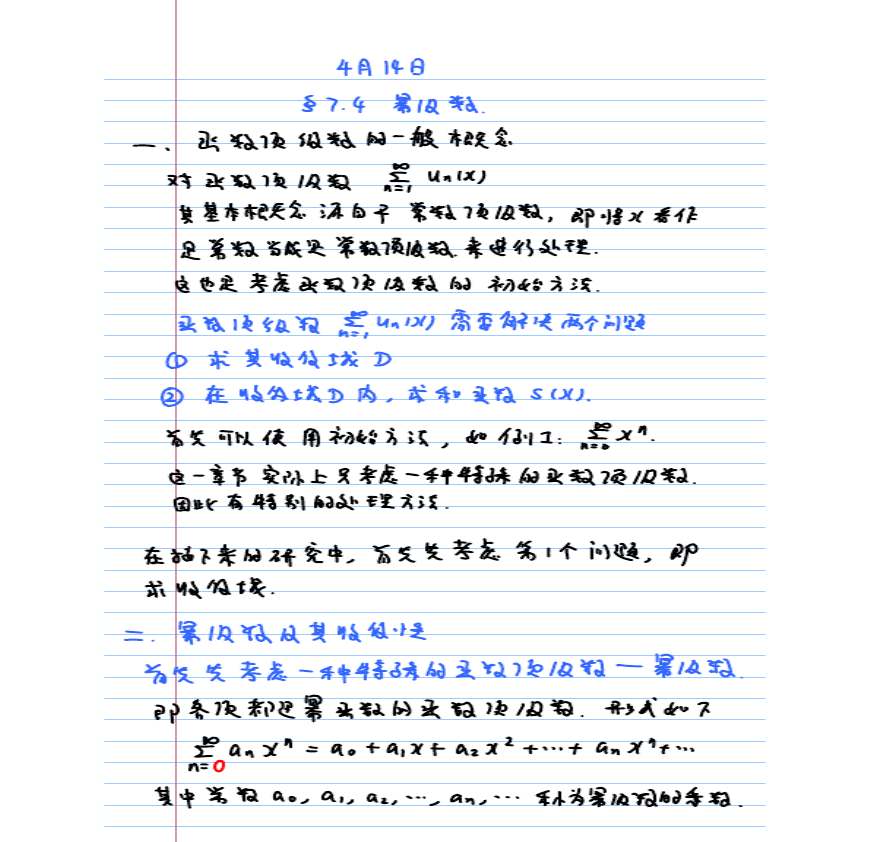 4月14日
§7.4 幂级数.
一、函数项级数的一般概念
对函数项级数 ∑_{n=1}^{∞} uₙ(x)
其基本概念源自于常数项级数, 即将x看作
是常数当成是常数项级数.来进行处理.
这也是考虑函数项级数的初始方法.
函数项级数 ∑_{n=1}^{∞} uₙ(x) 需要解决两个问题
① 求其收敛域D
② 在收敛域D内, 求和函数 S(x).
首先可以使用初始方法, 如例1: ∑_{n=0}^{∞} xⁿ.
这一章节实际上只考虑一种特殊的函数项级数.
因此有特别的处理方法.
在接下来的研究中, 首先先考虑第1个问题, 即
求收敛域.
二. 幂级数及其收敛性
首先先考虑一种特殊的函数项级数一幂级数.
即各项都是幂函数的函数项级数. 形式如下
∑_{n=0}^{∞} aₙxⁿ = a₀ + a₁x + a₂x² + ⋯ + aₙxⁿ + ⋯
其中常数 a₀, a₁, a₂, ⋯, aₙ, ⋯ 称为幂级数的系数.